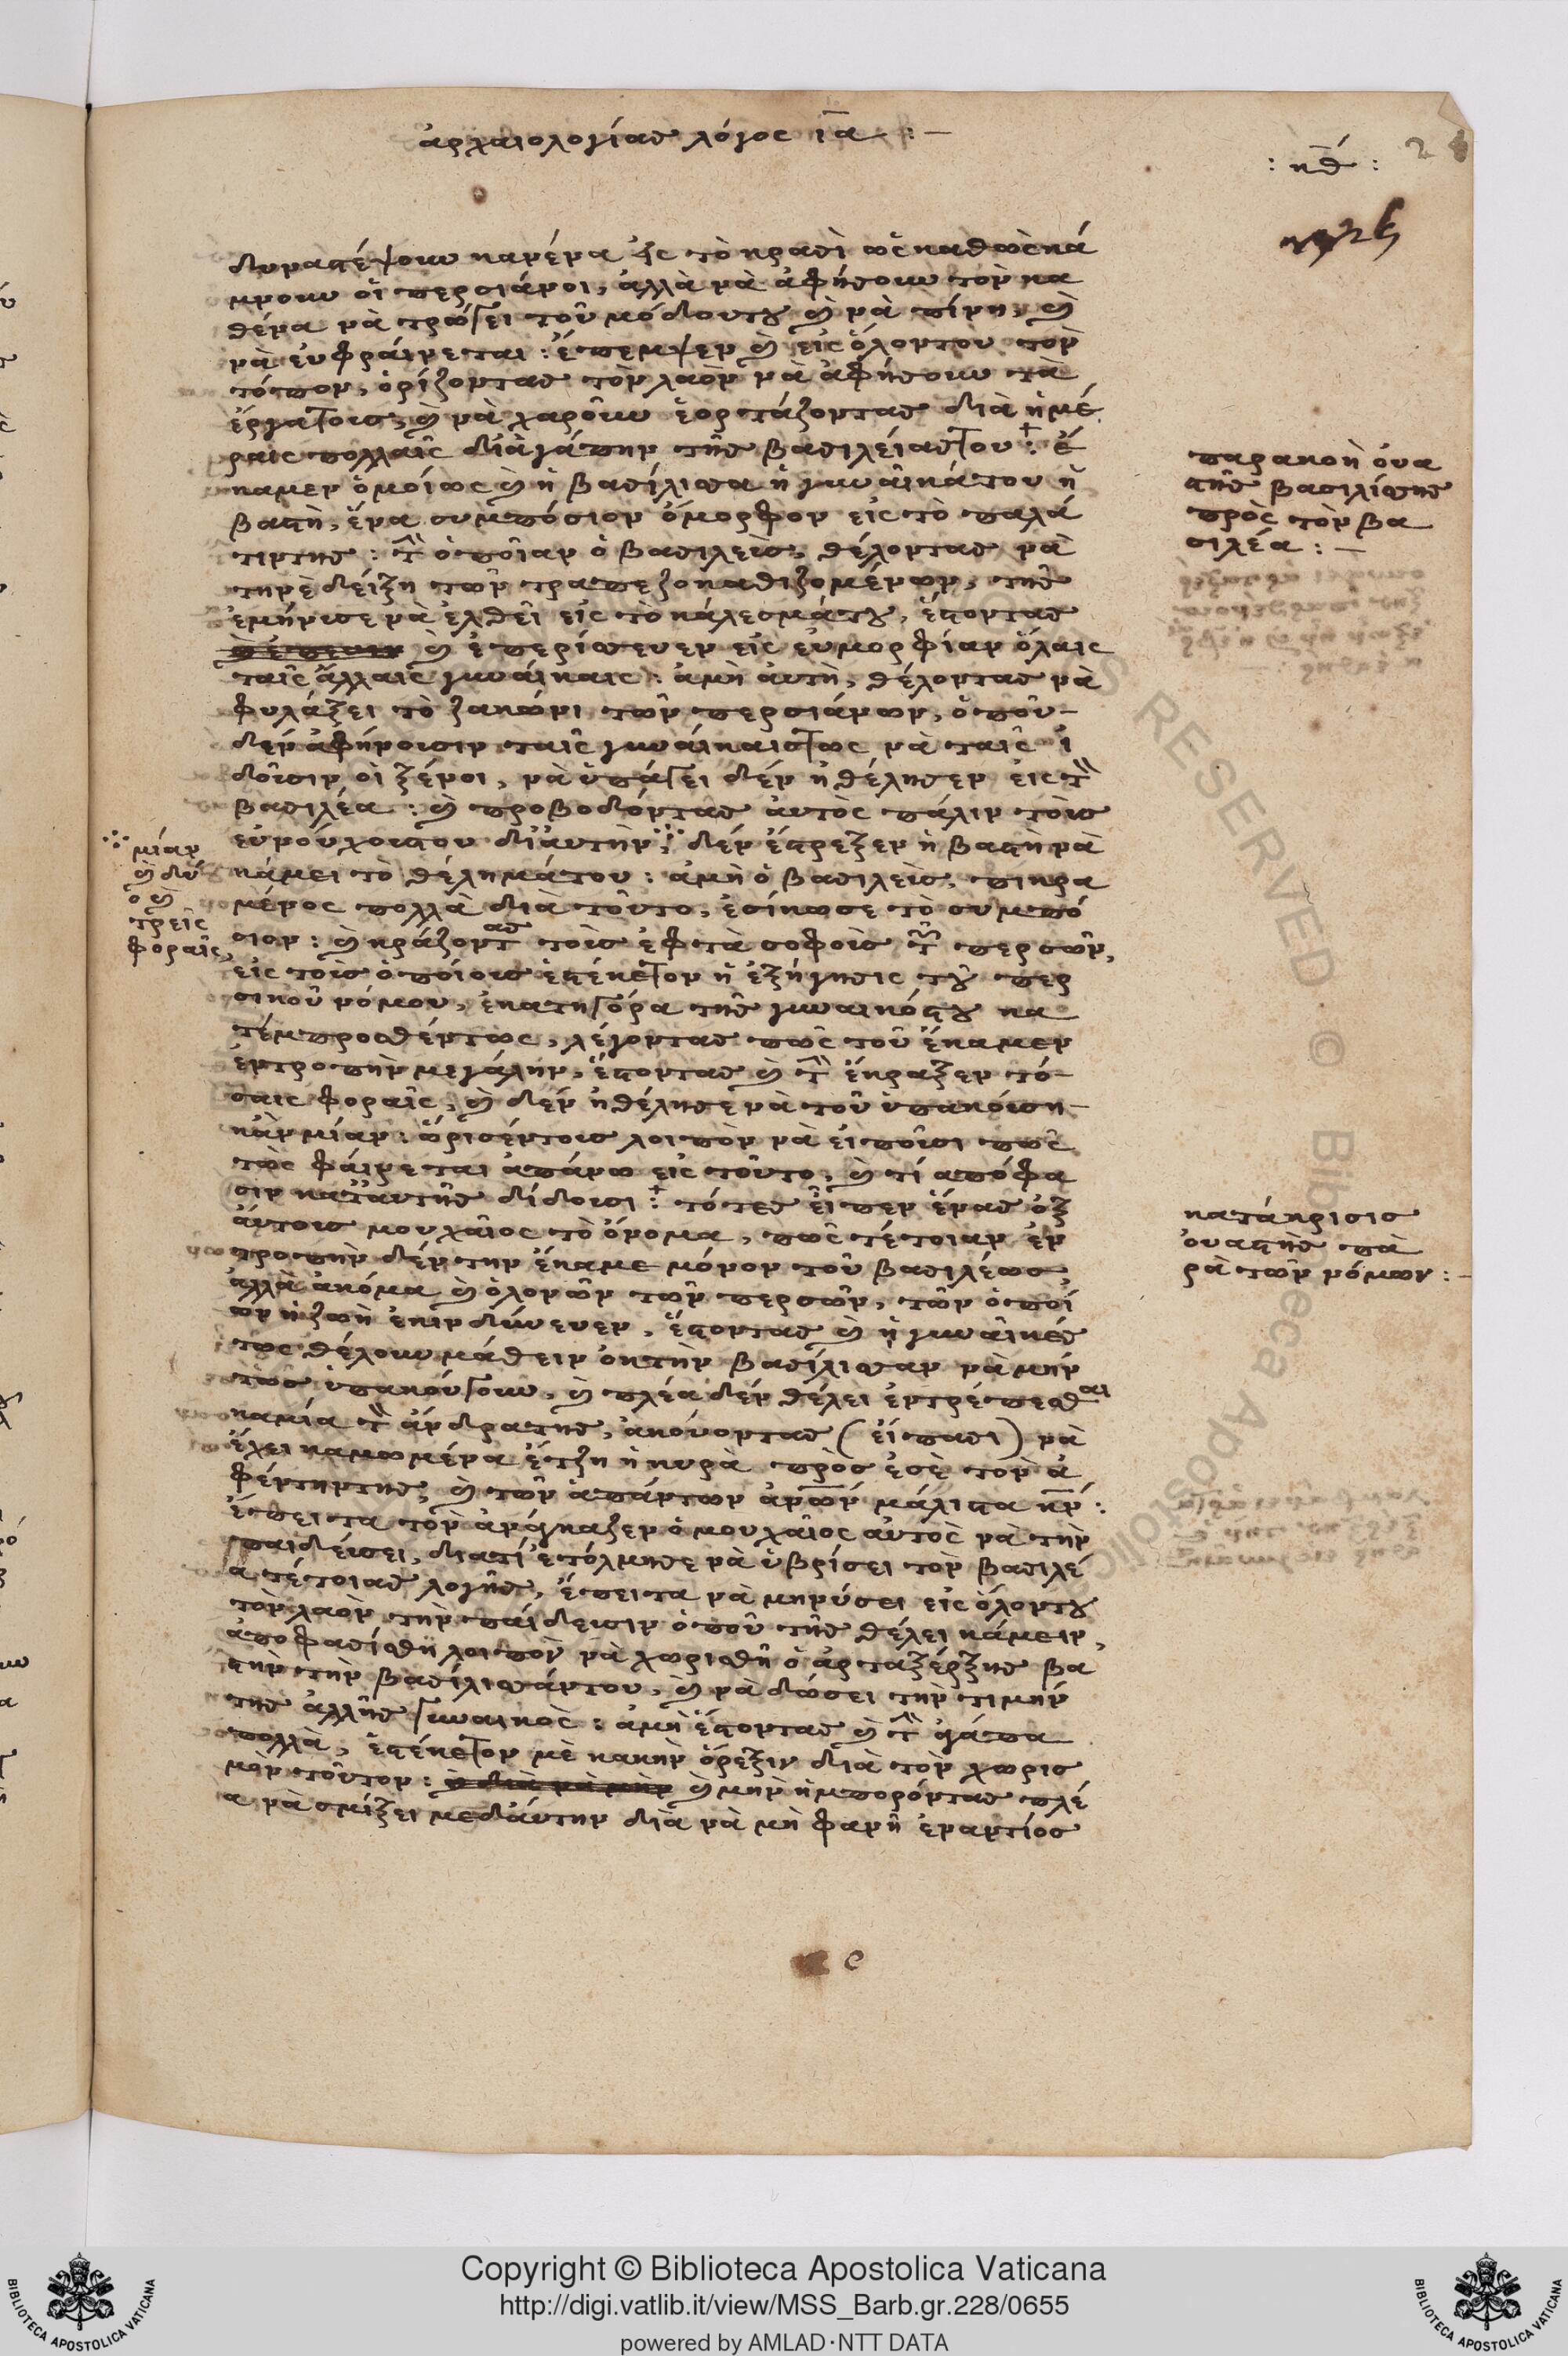 ἀρχαιολογίας λόγος ια :-
: κθ :
δυναστέψουν κανένα εἰς τὸ κρασὶ ὡς καθὼς κά
μνουν οἱ περσιάνοι, ἀλλὰ νὰ ἀφήσουν τὸν κα
θένα νὰ τρώγει τοῦ μόδουτου καὶ νὰ πίνη, καὶ
νὰ εὐφραίνεται : ἔπεμψεν καὶ εἰς ὅλοντου τὸν
τόπον, ὁρίζοντας τὸν λαὸν νὰ ἀφήσουν τὰ
ἔργατους, καὶ νὰ χαροῦν ἑορτάζοντας διὰ ἡμέ
ραις πολλαῖς δι' ἀγάπην τῆς βασιλείας του : ἔ
καμεν ὁμοίως καὶ ἡ βασίλισσα ἡ γυναῖκάτου ἡ
βαστὴ, ἕνα συμπόσιον ὄμορφον εἰς τὸ παλά
τιντης : τὴν ὁποῖαν ὁ βασιλεὺς, θέλοντας νὰ
τηνὲ δείξη τῶν τραπεζοκαθιζομένων, τῆς
ἐμήνυσε νὰ ἐλθεῖ εἰς τὸ κάλεσμάτου, ἔστοντας
καὶ ἐπερίσσευεν εἰς εὐμορφίαν ὅλαις
ταῖς ἄλλαις γυναίκαις : ἀμὴ αὐτὴ, θέλοντας νὰ
φυλάξει τὸ ζακώνι τῶν περσιάνων, ὁποῦ-
δὲν ἀφήνουσιν ταῖς γυναίκαιστως νὰ ταῖς ἰ
δοῦσιν οἱ ξένοι, νὰ ὑπάγει δὲν ἠθέλησεν εἰς τὸν
βασιλέα : καὶ προβοδόντας αὐτὸς πάλιν τοὺς
εὐνούχουστου δι' αὐτὴν ; δὲν ἔστρεξεν ἡ βαστὴ νὰ
κάμει τὸ θέλημάτου : ἀμὴ ὁ βασιλεὺς, πικρα
μένος πολλὰ διὰ τοῦτο, ἐσίκωσε τὸ συμπό
σιον : καὶ κράζοντας τοὺς ἑφτὰ σοφοὺς τῶν περσῶν,
εἰς τοὺς ὁποίους ἐστέκετον ἡ ἐξήγησις τοῦ περ
σικοῦ νόμου, ἐκατηγόρα τῆς γυναικόςτου κα
τέμπροσθέντως, λέγοντας πῶς τοῦ ἔκαμεν
ἐντροπὴν μεγάλην, ἔστοντας καὶ τὴν ἔκραξεν τό-
σαις φοραῖς, καὶ δὲν ἠθέλησε νὰ τοῦ ὑπακούση-
κἂν μίαν : ὥρισέντους λοιπὸν νὰ εἰποῦσι πῶς
τὼς φαίνεται ἀπάνω εἰς τοῦτο, καὶ τί ἀπόφα
σιν κατ' αὐτῆς δίδουσι : τότες εἶπεν ἕνας ἐξ
αὐτοὺς μουχαῖος τὸ ὄνομα, πῶς τέτοιαν ἐν
τροπὴν δέντην ἔκαμε μόνον τοῦ βασιλέως
ἀλλὰ ἀκόμα καὶ ὁλονῶν τῶν περσῶν, τῶν ὁποί
ων ἡ ζωὴ ἐκινδύνευεν, ἔστοντας καὶ ἡ γυναῖκές
τως θέλουν μάθειν ὀκτὴν βασίλισσαν νὰ μὴν
τῶς ὑπακούγουν, καὶ πλέα δὲν θέλει ἐντρέπεσθαι
καμία τὸν ἄνδρατης, ἀκούοντας (εἴπασι) νὰ
ἔχει καμωμένα ἔτζη ἡ κυρὰ πρὸς ἐσὲ τὸν ἀ
φέντηντης, καὶ τῶν ἁπάντων ἀνῶν μάλιστα κν :
ἔπειτα τὸν ἀνάγκαζεν ὁ μουχαῖος αὐτὸς νὰ τὴν
παιδεύσει, διατί ἐτόλμησε νὰ ὑβρίσει τὸν βασιλέ
α τέτοιας λογῆς, ἔπειτα νὰ μηνύσει εἰς ὅλοντου
τὸν λαὸν τὴν παίδευσιν ὁποῦ τῆς θέλει κάμειν,
ἀποφασίσθη λοιπὸν νὰ χωρισθῆ ὁ ἀρταξέρξης βα
στὴν τὴν βασίλισσάντου, καὶ νὰ δώσει τὴν τιμήν
της ἀλλῆς γυναικὸς : ἀμὴ ἔστοντας καὶ τὴν ἀγάπα
πολλὰ, ἐστέκετον μὲ κακὴν ὄρεξιν διὰ τὸν χωρισ
μὸν τοῦτον : καὶ μὴν ἠμπορόντας πλέ
α νὰ σμίξει μεσ' αὐτην διὰ νὰ μὴ φανῆ ἐναντίος
μίαν
καὶ δύ
ο καὶ
τρεῖς
φοραῖς,
παρακοὴ ὀνα
στῆς βασιλίσσης
πρὸς τὸν βα
σιλέα : -
κατάκρισις
ὀναστῆς πα
ρὰ τῶν νόμων : -
Copyright © Biblioteca Apostolica Vaticana
http://digi.vatlib.it/view/MSS_Barb.gr.228/0655
powered by AMLAD·NTT DATA
BIBLIOTECA APOSTOLICA VATICANA
BIBLIOTECA APOSTOLICA VATICANA